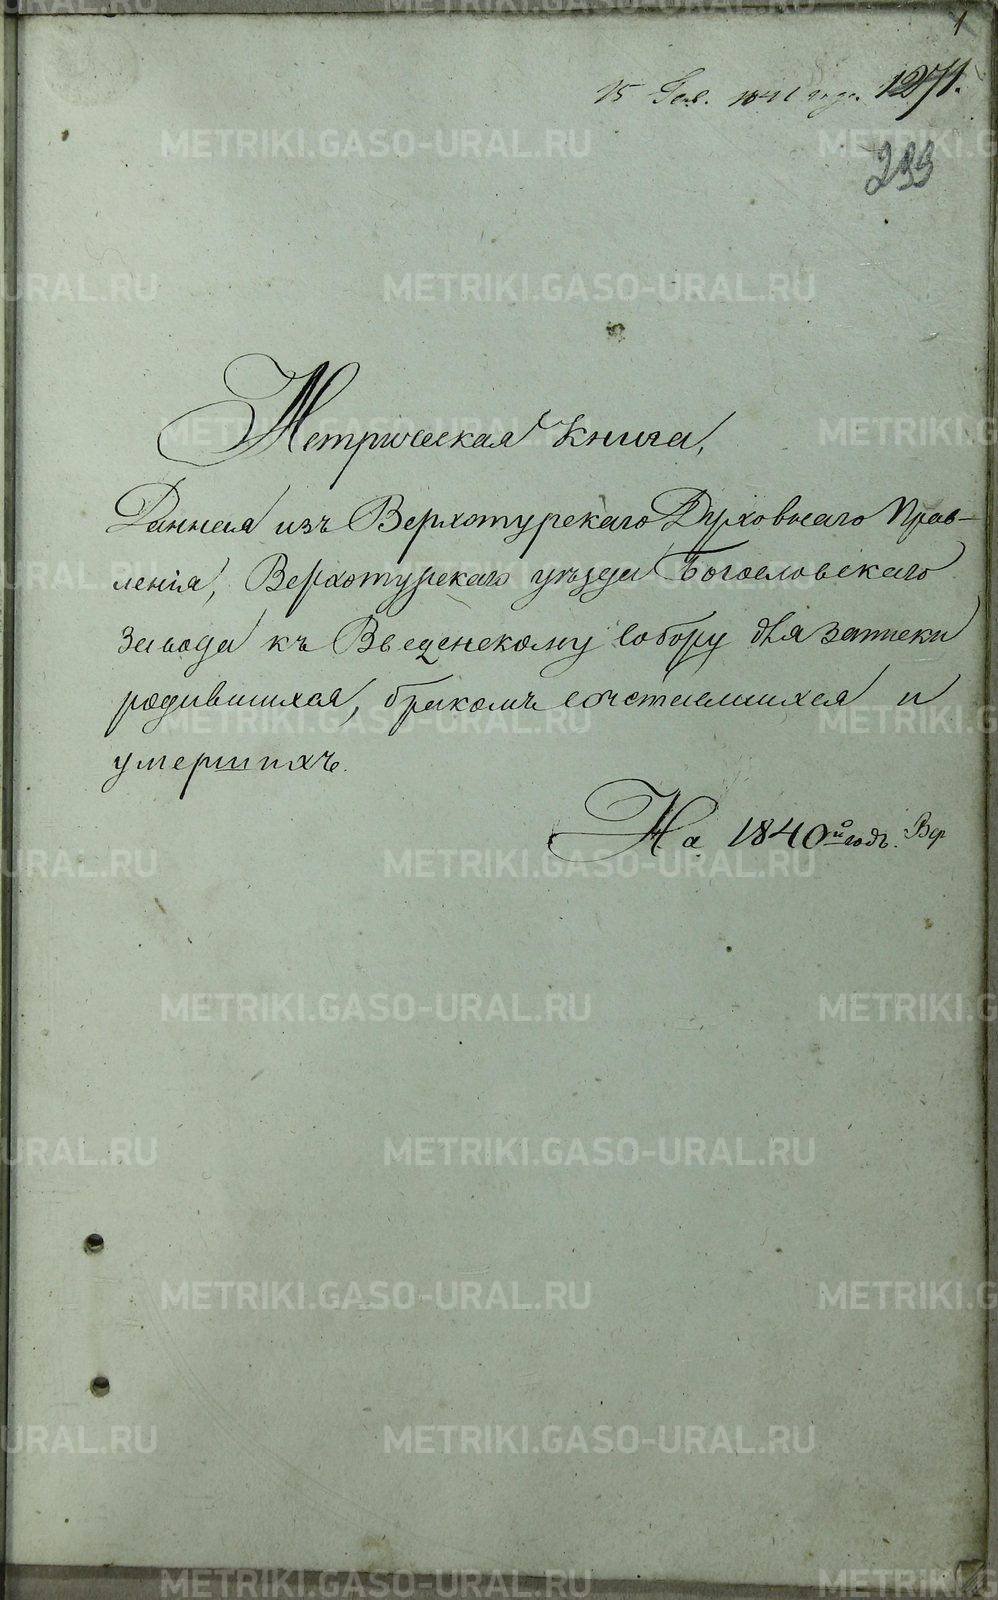 1
15 Ген. 1841 года. 1271.
233
Метрическая книга,
Данная изъ Верхотурскаго Духовнаго Прав-
ленія, Верхотурскаго уѣзда Богословскаго
завода къ Введенскому собору для записки
родившихся, бракомъ сочетавшихся и
умершихъ.
На 1840й годъ.
METRIKI.GASO-URAL.RU